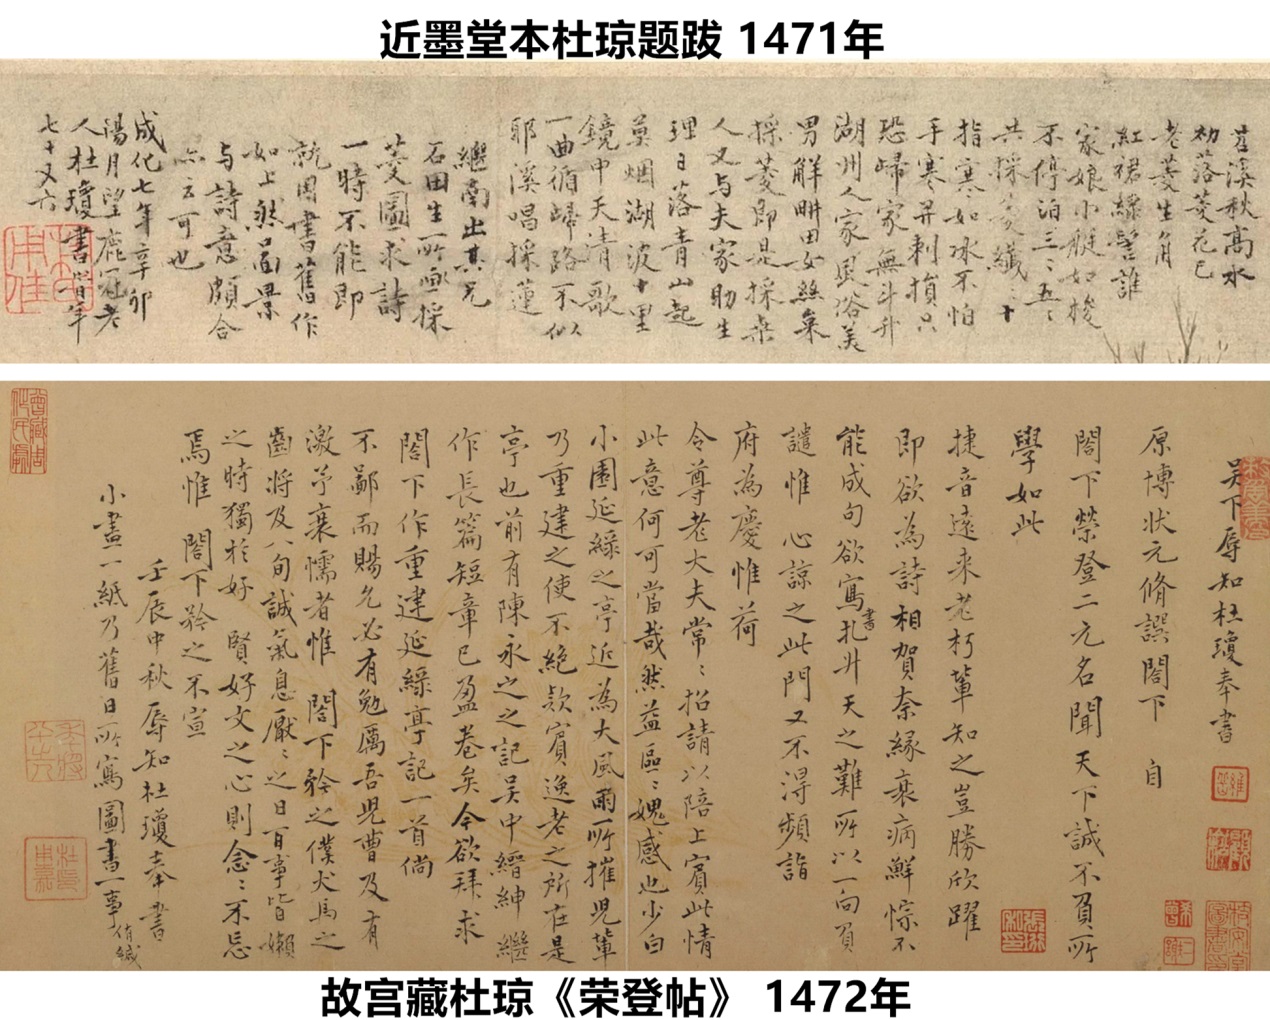 近墨堂本杜琼题跋 1471年
苕溪秋高水
初落菱花已
老菱生角
紅裙綠髻誰
家娘小艇如梭
不停泊三〻五〻
共採菱纖〻十
指寒如冰不怕
手寒并刺損只
恐歸家無斗升
湖州人家風俗美
男解畊田女絲枲
採菱即是採桑
人又与夫家助生
理日落青山起
莫烟湖波十里
鏡中天清歌
一曲循歸路不似
耶溪唱採蓮
繼南出其兄
石田生所畫採
菱圖求詩
一時不能即
就因書舊作
如上然畫景
与詩意頗合
亦云可也
成化七年辛卯
陽月望鹿冠老
人杜瓊書當年
七十又六
吴下辱知杜瓊奉書
原博狀元脩譔閣下 自
閣下榮登二元名聞天下誠不負所
學如此
捷音遠来老朽輩知之豈勝欣躍
即欲為詩相賀奈緣衰病鮮悰不
能成句欲寫書扎升天之難所以一向負
譴惟心諒之此門又不得頻詣
府為慶惟荷
令尊老大夫常〻招請以陪上賓此情
此意何可當哉然益區〻媿感也少白
小園延綠之亭近為大風雨所摧児輩
乃重建之使不絕款賓逸老之所在是
亭也前有陳永之之記吴中縉紳繼
作長篇短章已盈卷矣今欲拜求
閣下作重建延綠亭記一首倘
不鄙而賜允必有勉厲吾児曹及有
激予衰懦者惟 閣下矜之僕犬馬之
齒將及八旬誠氣息厭〻之日百事皆嬾
之時獨於好 賢好文之心則念〻不忘
焉惟 閣下矜之不宣
壬辰中秋辱知杜瓊奉書
小畫一紙乃舊日所寫圖書一事侑緘
故宫藏杜琼《荣登帖》 1472年